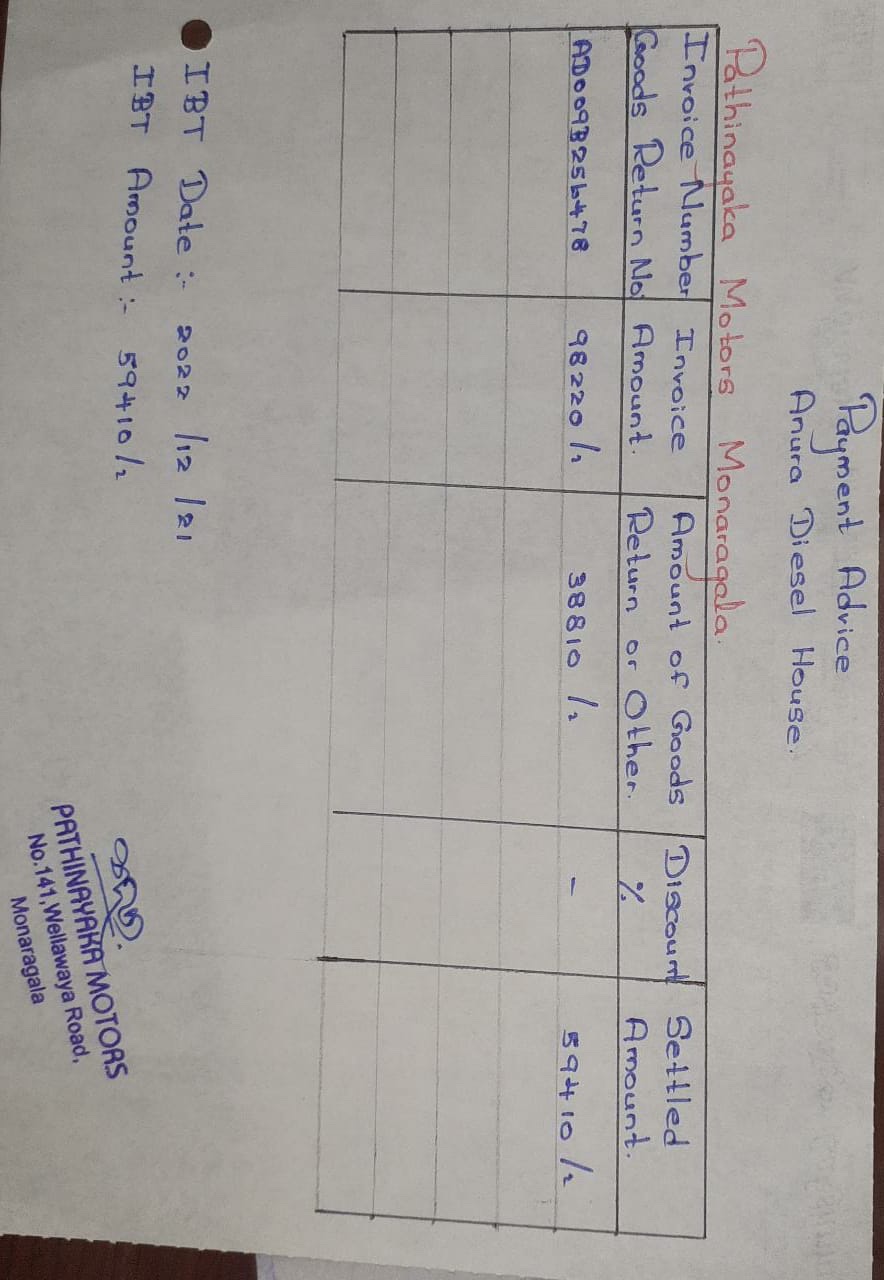 Payment Advice
Anura Diesel House.
Pathinayaka Motors Monaragala.
Invoice Number Invoice Amount of Goods Discount Settled
Goods Return No Amount. Return or Other. % Amount.
AD009B256478 98220/= 38810/= - 59410/=
IBT Date :- 2022/12/21
IBT Amount :- 59410/=
PATHINAYAKA MOTORS
No.141, Wellawaya Road,
Monaragala